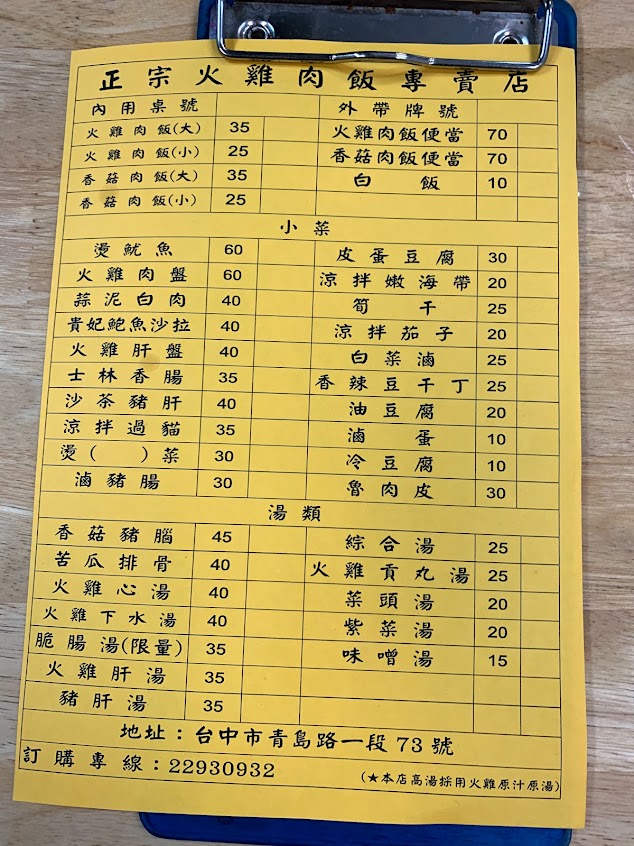 正宗火雞肉飯專賣店
內用桌號 外帶牌號
火雞肉飯(大) 35 火雞肉飯便當 70
火雞肉飯(小) 25 香菇肉飯便當 70
香菇肉飯(大) 35 白飯 10
香菇肉飯(小) 25
小菜
燙魷魚 60 皮蛋豆腐 30
火雞肉盤 60 涼拌嫩海帶 20
蒜泥白肉 40 筍干 25
貴妃鮑魚沙拉 40 涼拌茄子 20
火雞肝盤 40 白菜滷 25
士林香腸 35 香辣豆干丁 25
沙茶豬肝 40 油豆腐 20
涼拌過貓 35 滷蛋 10
燙( )菜 30 冷豆腐 10
滷豬腸 30 魯肉皮 30
湯類
香菇豬腦 45 綜合湯 25
苦瓜排骨 40 火雞貢丸湯 25
火雞心湯 40 菜頭湯 20
火雞下水湯 40 紫菜湯 20
脆腸湯(限量) 35 味噌湯 15
火雞肝湯 35
豬肝湯 35
地址：台中市青島路一段73號
訂購專線：22930932 (★本店高湯採用火雞原汁原湯)